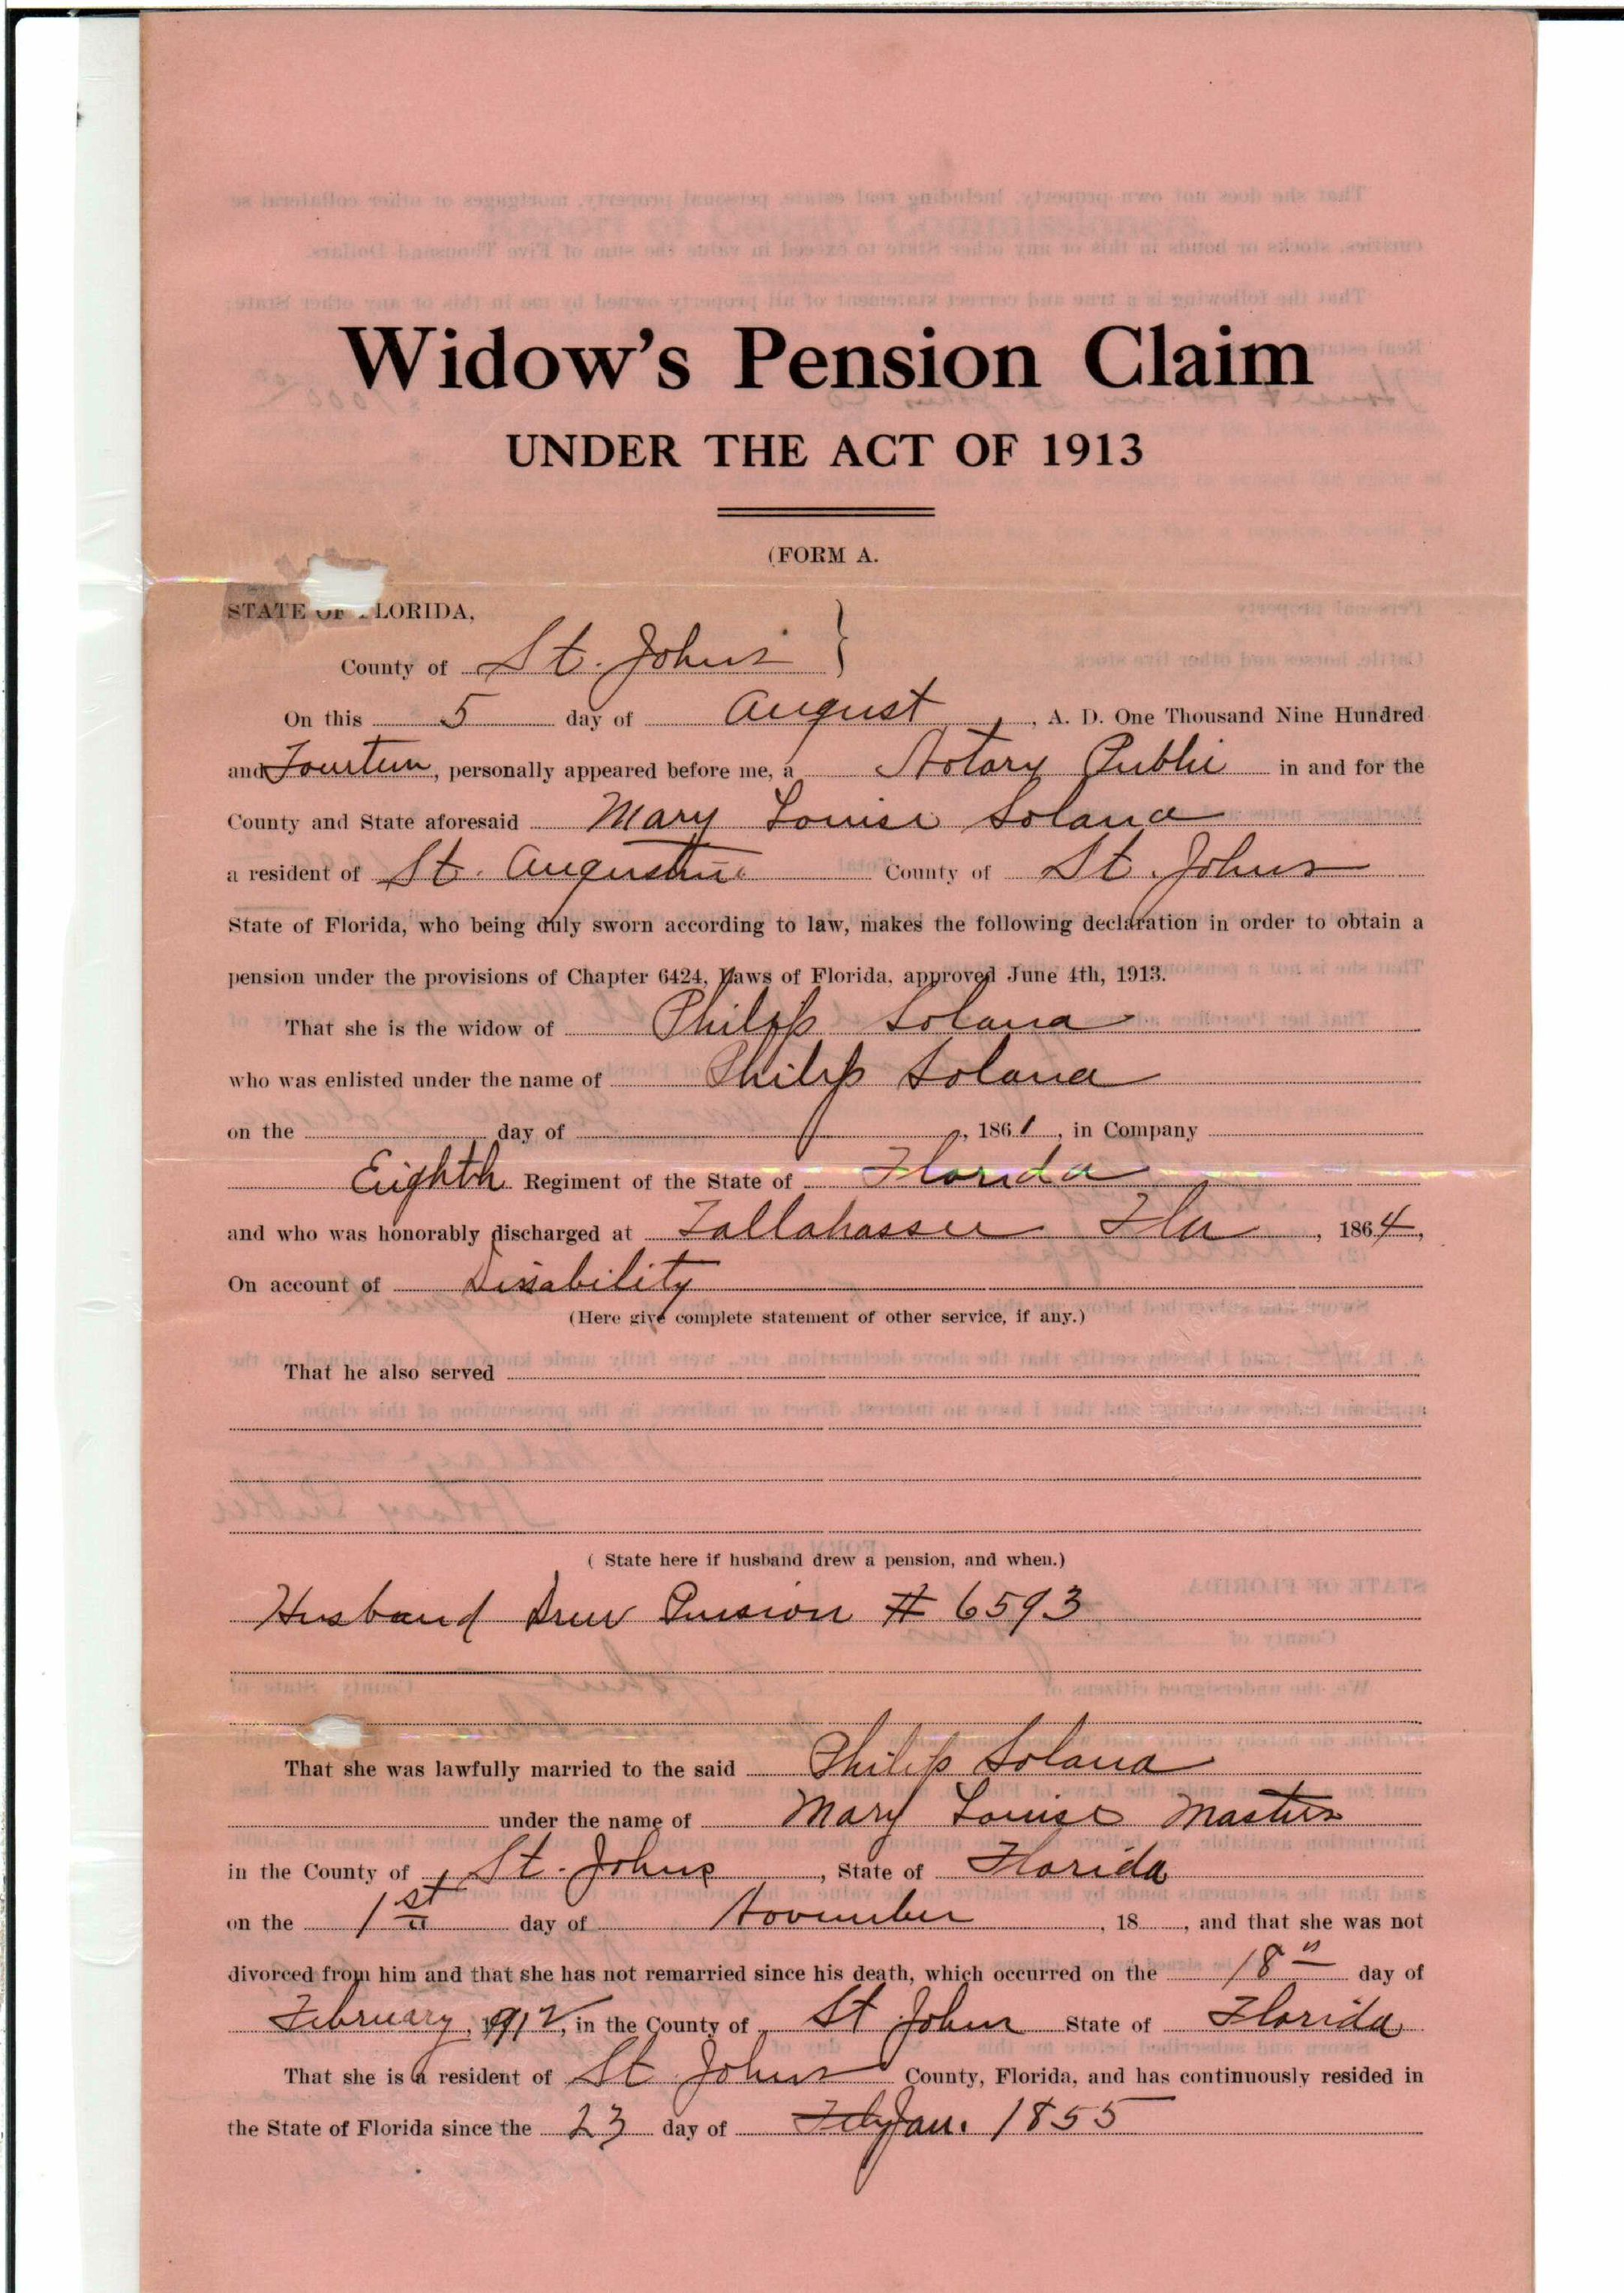 Widow's Pension Claim
UNDER THE ACT OF 1913
(FORM A.
STATE OF FLORIDA,
County of St. Johns }
On this 5 day of August, A. D. One Thousand Nine Hundred
and Fourteen, personally appeared before me, a Notary Public in and for the
County and State aforesaid Mary Louise Solana
a resident of St. Augustine County of St. Johns
State of Florida, who being duly sworn according to law, makes the following declaration in order to obtain a
pension under the provisions of Chapter 6424, Laws of Florida, approved June 4th, 1913.
That she is the widow of Philip Solana
who was enlisted under the name of Philip Solana
on the day of , 1861, in Company
Eighth Regiment of the State of Florida
and who was honorably discharged at Tallahassee Fla, 1864,
On account of Dissability
(Here give complete statement of other service, if any.)
That he also served
( State here if husband drew a pension, and when.)
Husband Drew Pension # 6593
That she was lawfully married to the said Philip Solana
under the name of Mary Louise Masters
in the County of St. Johns, State of Florida
on the 1st day of November, 18 , and that she was not
divorced from him and that she has not remarried since his death, which occurred on the 18" day of
February, 1912, in the County of St Johns State of Florida
That she is a resident of St Johns County, Florida, and has continuously resided in
the State of Florida since the 23 day of Jan. 1855